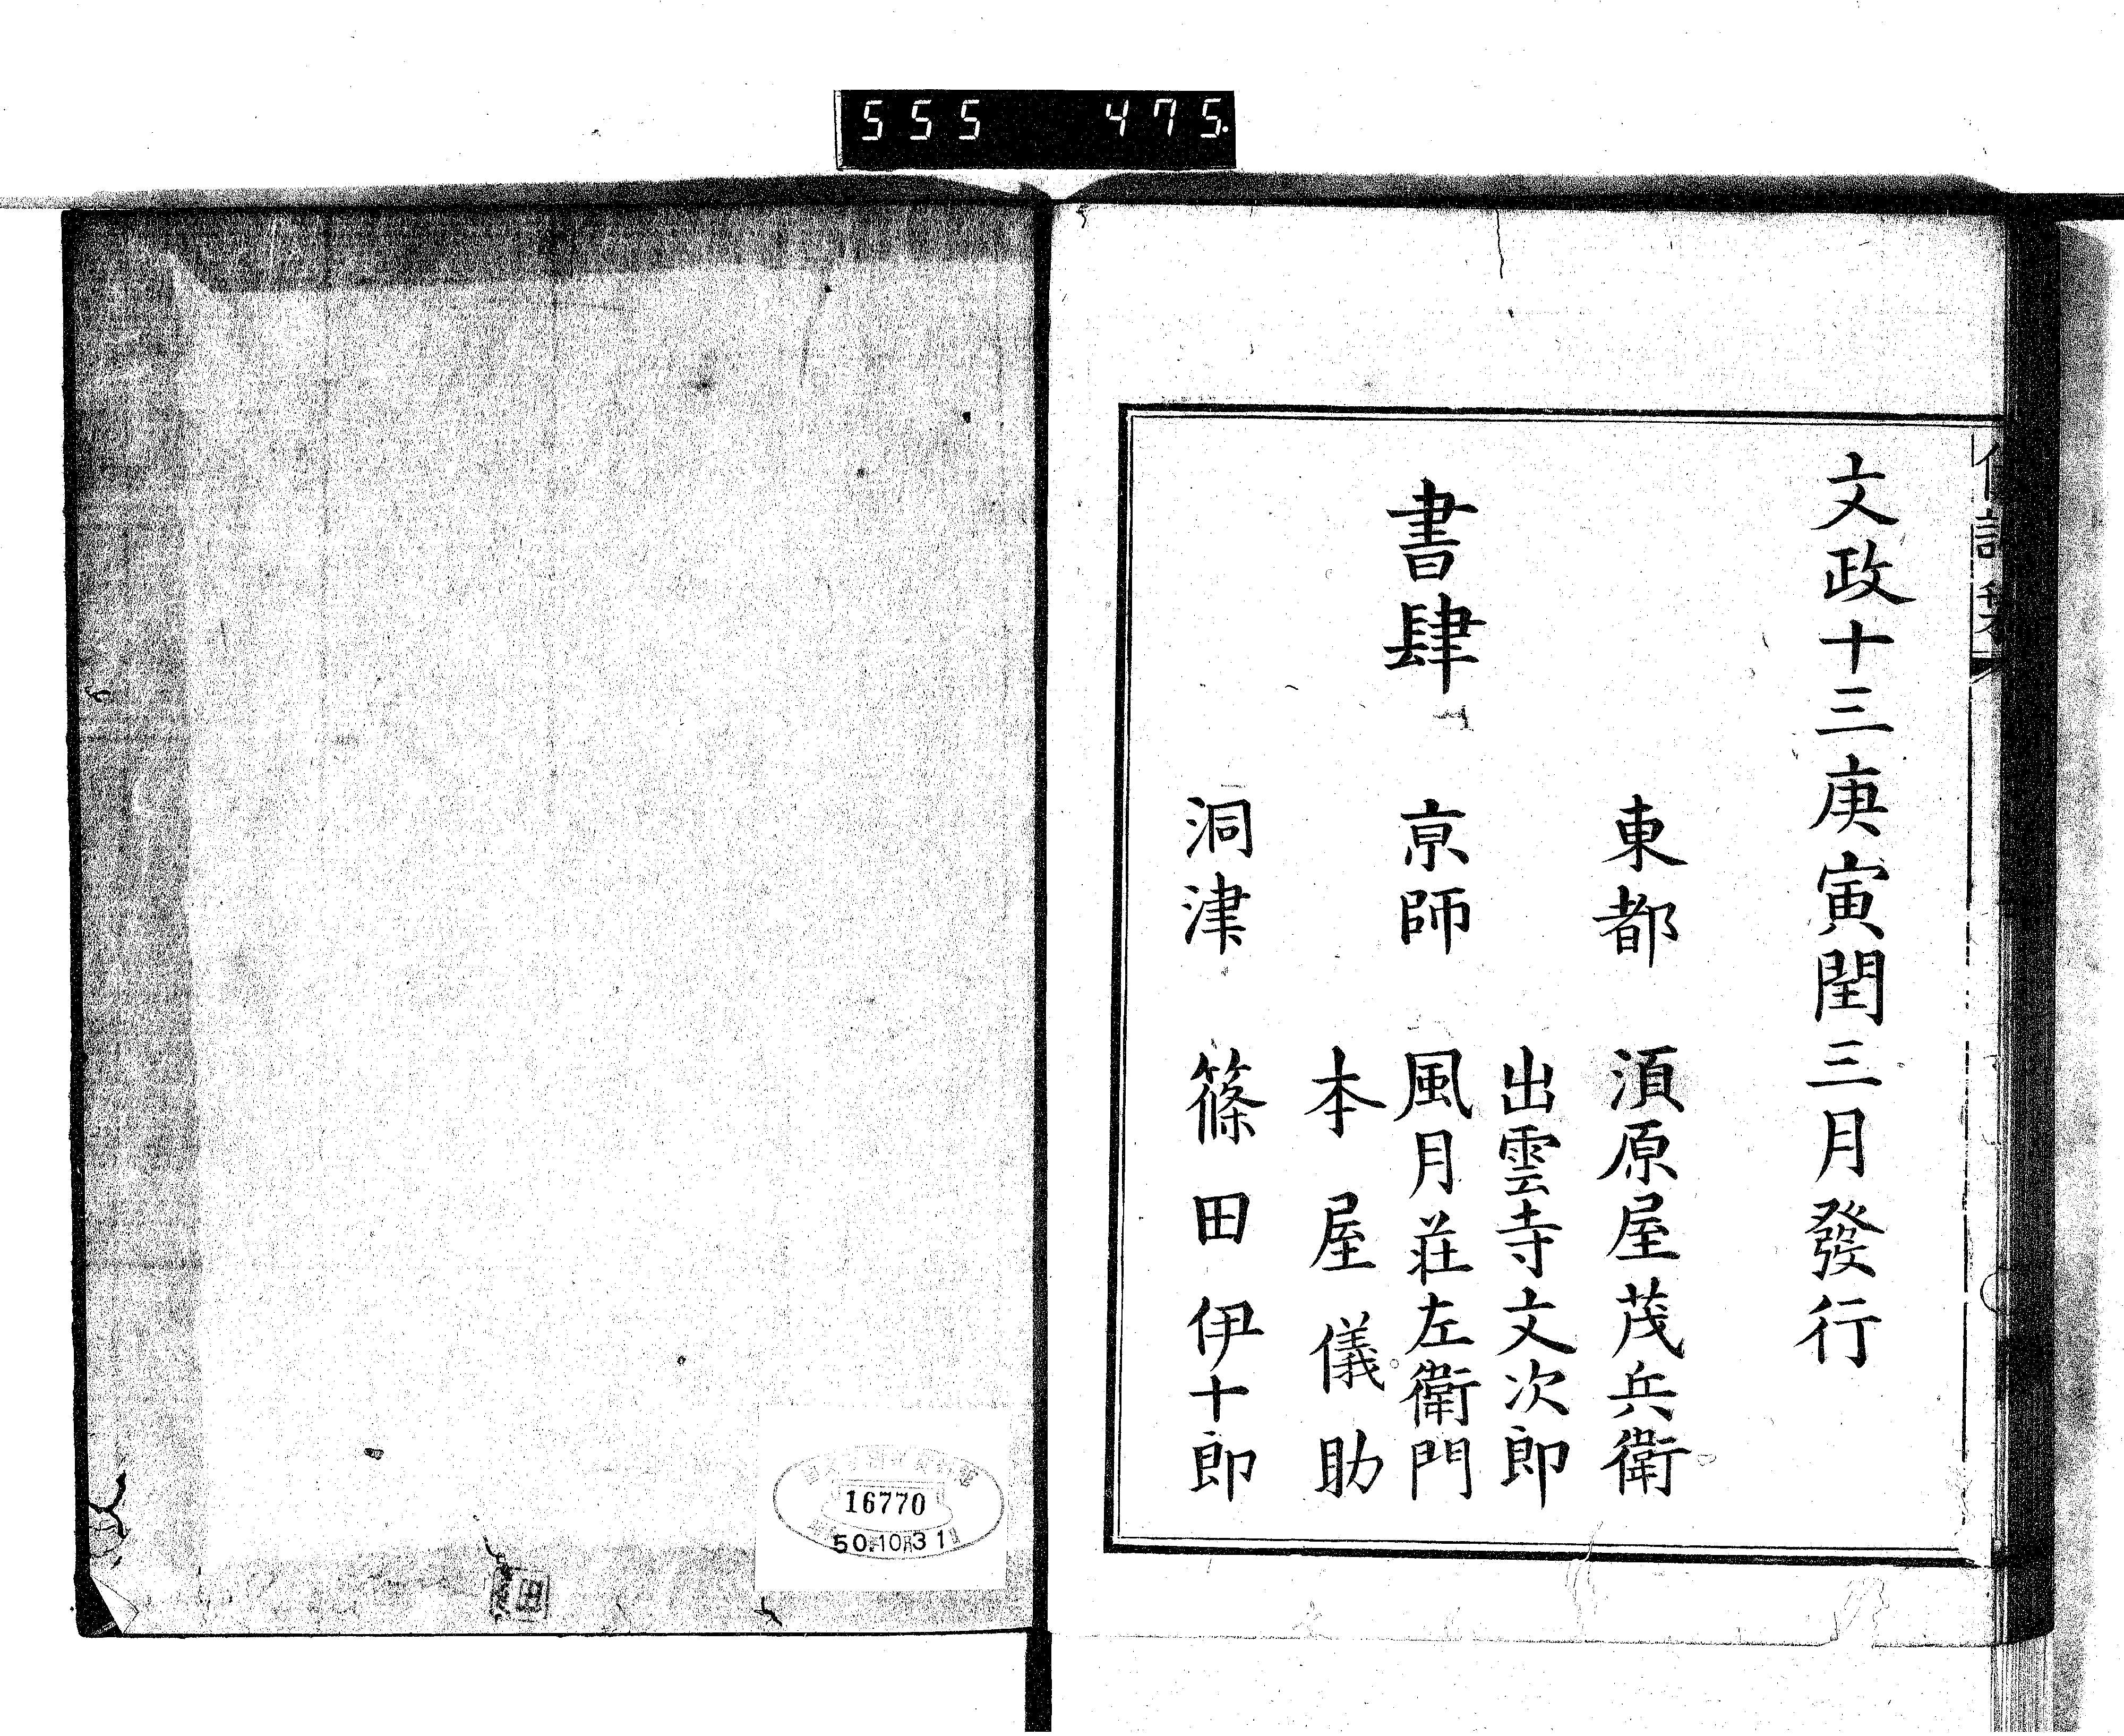 555 475.
文政十三庚寅閏三月發行
東都 須原屋茂兵衛
出雲寺文次郎
書肆 京師 風月荘左衛門
本屋儀助
洞津 篠田伊十郎
16770
50.10.31